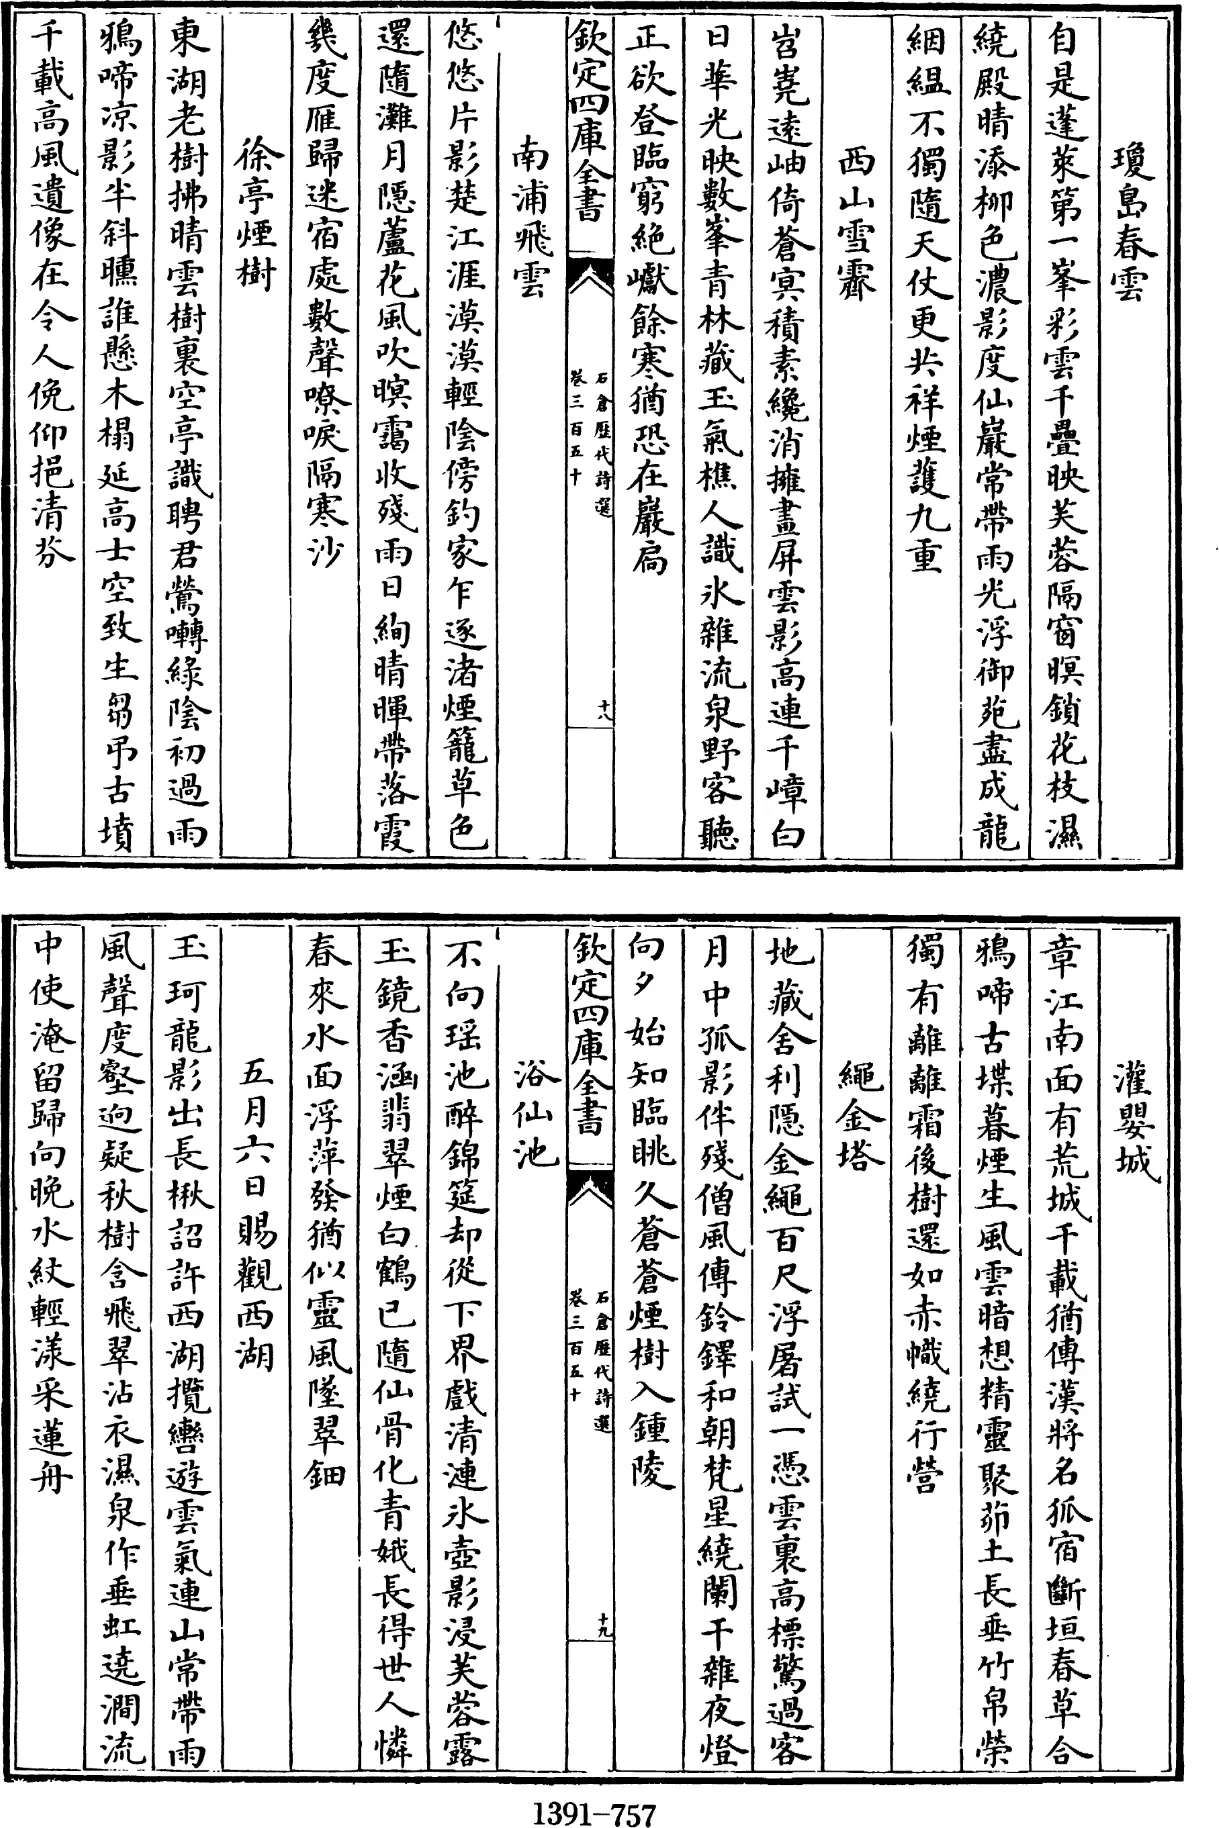 瓊島春雲
自是蓬萊第一峯彩雲千疊映芙蓉隔窗暝鎖花枝濕
繞殿晴添柳色濃影度仙巖常帶雨光浮御苑盡成龍
絪縕不獨隨天仗更共祥煙護九重
西山雪霽
岧嶤遠岫倚蒼冥積素纔消擁畫屏雲影高連千嶂白
日華光映數峯青林藏玉氣樵人識氷雜流泉野客聽
正欲登臨窮絶巘餘寒猶恐在巖扃
欽定四庫全書
石倉歷代詩選
卷三百五十
十八
南浦飛雲
悠悠片影楚江涯漠漠輕陰傍釣家乍逐渚煙籠草色
還隨灘月隠蘆花風吹暝靄收殘雨日絢晴暉帶落霞
幾度雁歸迷宿處數聲嘹唳隔寒沙
徐亭煙樹
東湖老樹拂晴雲樹裏空亭識聘君鶯囀緑陰初過雨
鴉啼凉影半斜曛誰懸木榻延高士空致生芻弔古墳
千載高風遺像在令人俛仰挹清芬
灌嬰城
章江南面有荒城千載猶傳漢將名狐宿斷垣春草合
鴉啼古堞暮煙生風雲暗想精靈聚茆土長垂竹帛榮
獨有離離霜後樹還如赤幟繞行營
繩金塔
地藏舍利隠金繩百尺浮屠試一憑雲裏高標驚過客
月中孤影伴殘僧風傳鈴鐸和朝梵星繞闌干雜夜燈
向夕始知臨眺久蒼蒼煙樹入鍾陵
欽定四庫全書
石倉歷代詩選
卷三百五十
十九
浴仙池
不向瑶池醉錦筵却從下界戲清漣氷壺影浸芙蓉露
玉鏡香涵翡翠煙白鶴已隨仙骨化青娥長得世人憐
春來水面浮萍發猶似靈風墜翠鈿
五月六日賜觀西湖
玉珂龍影出長楸詔許西湖攬轡遊雲氣連山常帶雨
風聲度壑迥疑秋樹含飛翠沾衣濕泉作垂虹遶澗流
中使淹留歸向晚水紋輕漾采蓮舟
1391-757